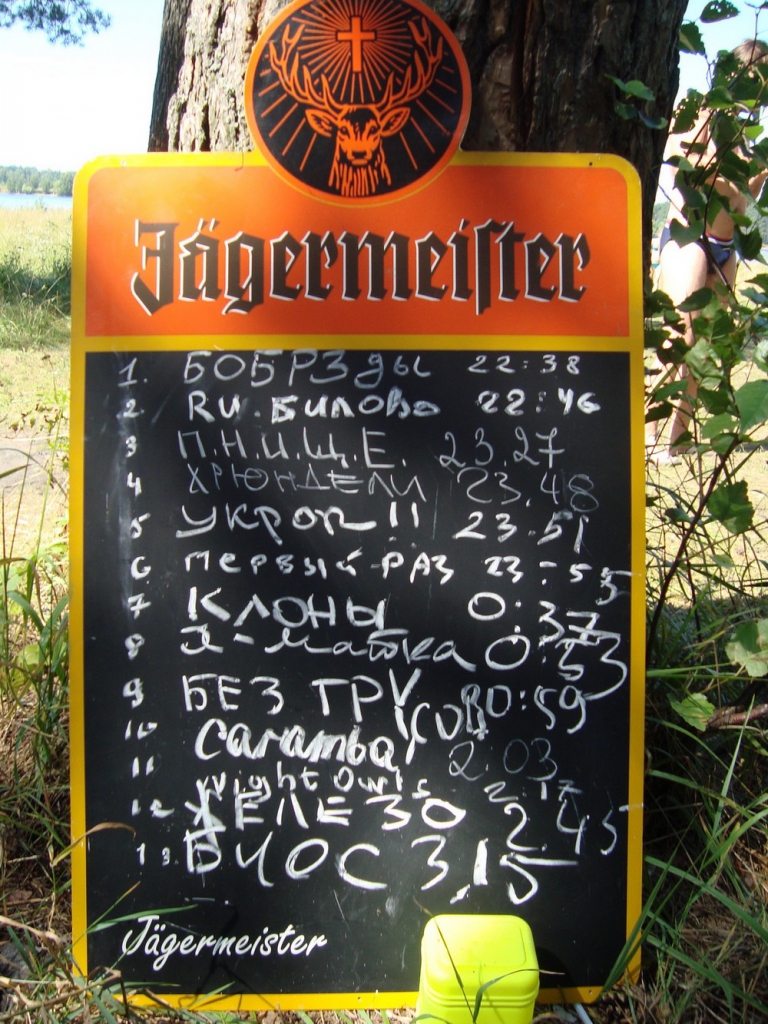 Jägermeister
1. БОБРЗДЫ 22:38
2 Ru.Билово 22:46
3 П.Н.И.Щ.Е. 23.27
4 ХРЮНДЕЛИ 23.48
5 УКРОП!! 23.51
6 первый РАЗ 23-55
7 КЛОНЫ 0:37
8 Я-матка 0:53
9 БЕЗ ТРУСОВ 0:59
10 Caramba 2.03
11 Night Owls 2.17
12 ЖЕЛЕЗО 2.45
13 БИОС 3,15
Jägermeister